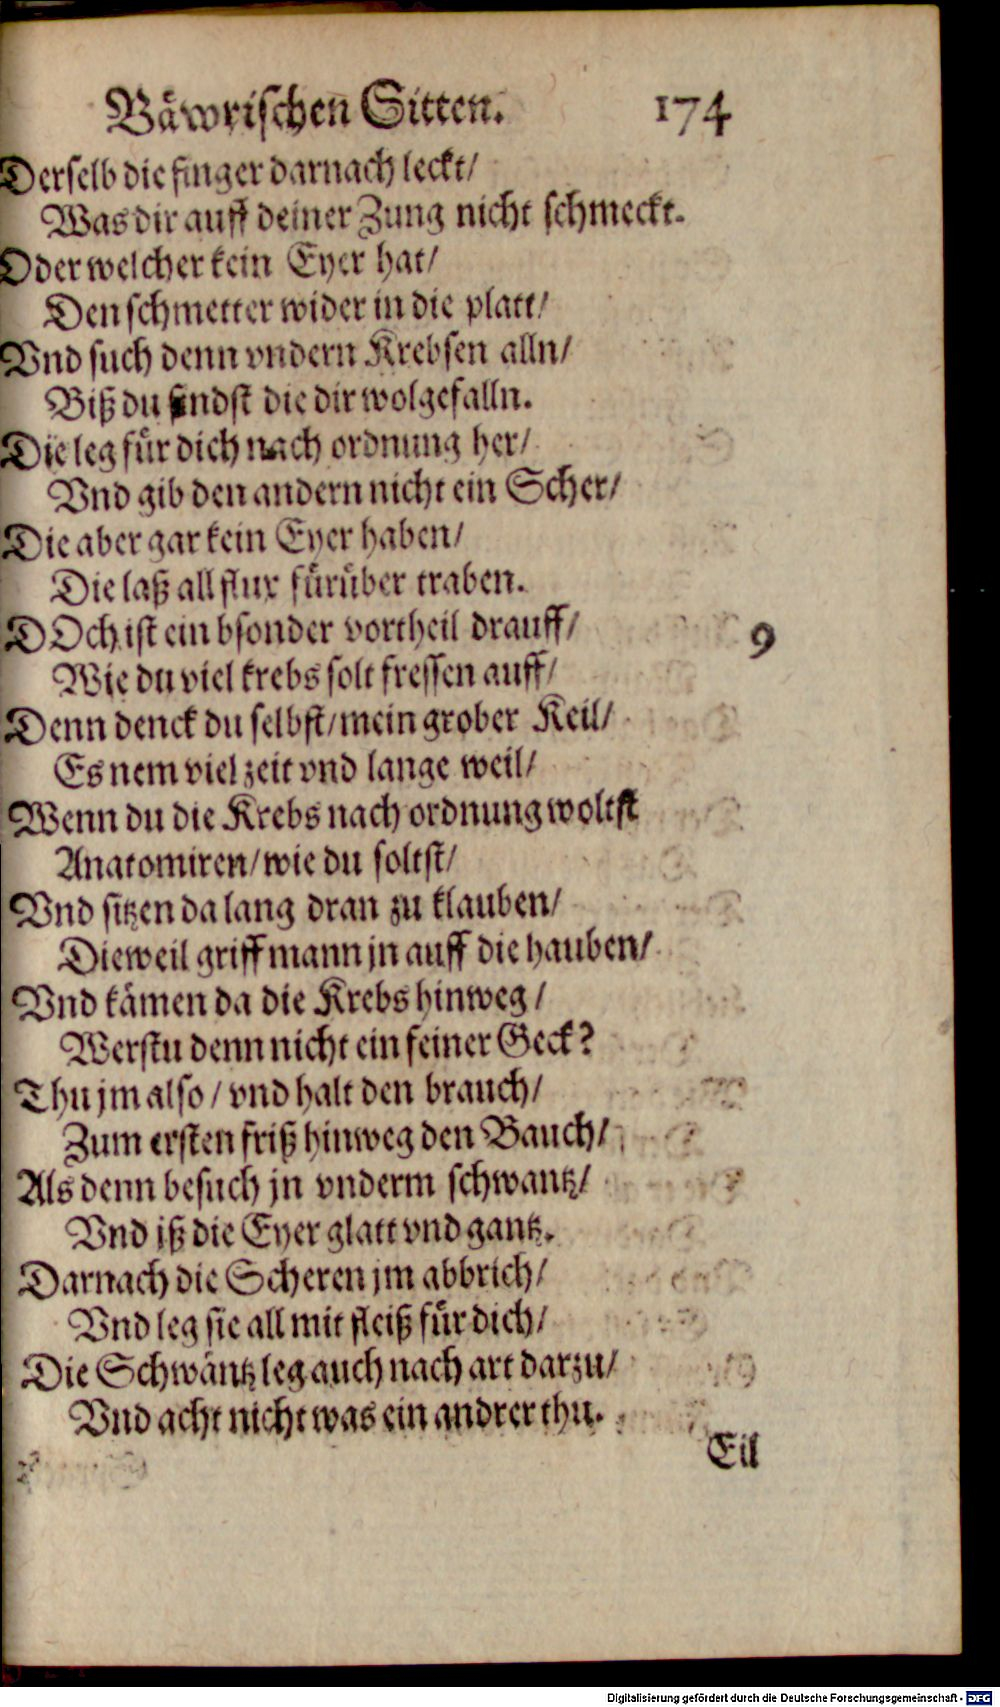 Bäwrischen Sitten. 174
Derselb die finger darnach leckt/
Was dir auff deiner Zung nicht schmeckt.
Oder welcher kein Eyer hat/
Den schmetter wider in die platt/
Vnd such denn vndern Krebsen alln/
Biß du findst die dir wolgefalln.
Die leg für dich nach ordnung her/
Vnd gib den andern nicht ein Scher/
Die aber gar kein Eyer haben/
Die laß all flux fürüber traben.
DOch ist ein bsonder vortheil drauff/ 9
Wie du viel krebs solt fressen auff/
Denn denck du selbst/ mein grober Keil/
Es nem viel zeit vnd lange weil/
Wenn du die Krebs nach ordnung woltst
Anatomiren/ wie du soltst/
Vnd sitzen da lang dran zu klauben/
Dieweil griff mann jn auff die hauben/
Vnd kämen da die Krebs hinweg/
Werstu denn nicht ein feiner Geck?
Thu jm also/ vnd halt den brauch/
Zum ersten friß hinweg den Bauch/
Als denn besuch jn vnderm schwantz/
Vnd iß die Eyer glatt vnd gantz.
Darnach die Scheren jm abbrich/
Vnd leg sie all mit fleiß für dich/
Die Schwäntz leg auch nach art darzu/
Vnd acht nicht was ein andrer thu.
Eil
Digitalisierung gefördert durch die Deutsche Forschungsgemeinschaft - DFG